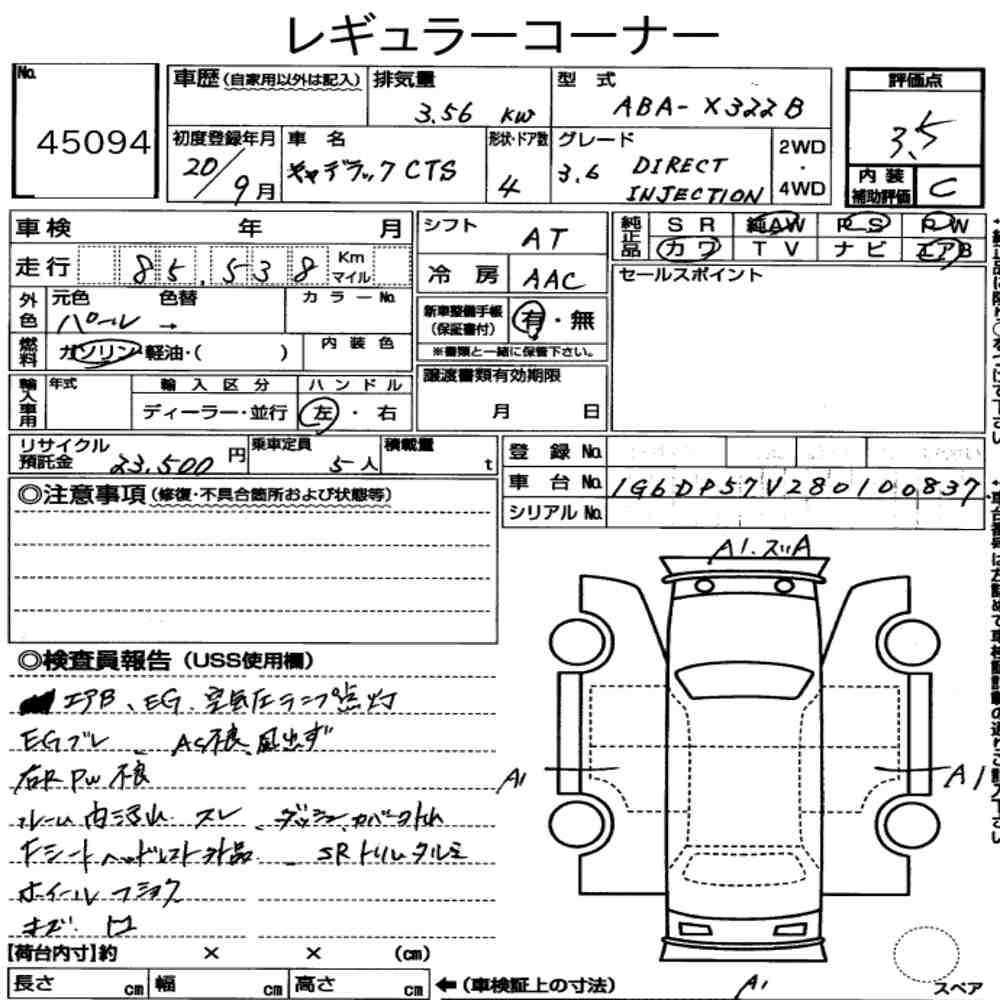 レギュラーコーナー
No. 45094
車歴(自家用以外は記入) 排気量 3.56 KW 型式 ABA-X322B
初度登録年月 20/9月 車名 キャデラックCTS 形状・ドア数 4 グレード 3.6 DIRECT INJECTION 2WD・4WD
評価点 3.5
内装補助評価 C
車検 年 月
走行 85,538 Km マイル
外色 元色 パール → 色替 カラーNo.
燃料 ガソリン・軽油・( ) 内装色
輸入車用 年式 輸入区分 ディーラー・並行 ハンドル 左・右
シフト AT
冷房 AAC
新車整備手帳(保証書付) 有・無
※書類と一緒に保管下さい。
譲渡書類有効期限 月 日
純正品 SR 純AW PS PW
カワ TV ナビ エアB
セールスポイント
リサイクル預託金 23,500円 乗車定員 5人 積載量 t
登録No.
車台No. 1G6DP57V280100837
シリアルNo.
◎注意事項(修復・不具合箇所および状態等)
◎検査員報告(USS使用欄)
エアB、EG、空気圧ランプ点灯
EGブレ、AC不良 風出ず
右R PW 不良
ルーム内 スレ、ダッシュ、カバー
Fシートヘッドレスト欠品、SRトリムタルミ
ホイール フショク
キズ 凹
A1.スリA
A1
A1
A1
【荷台内寸】約 × × (cm)
長さ cm 幅 cm 高さ cm ←(車検証上の寸法)
スペア